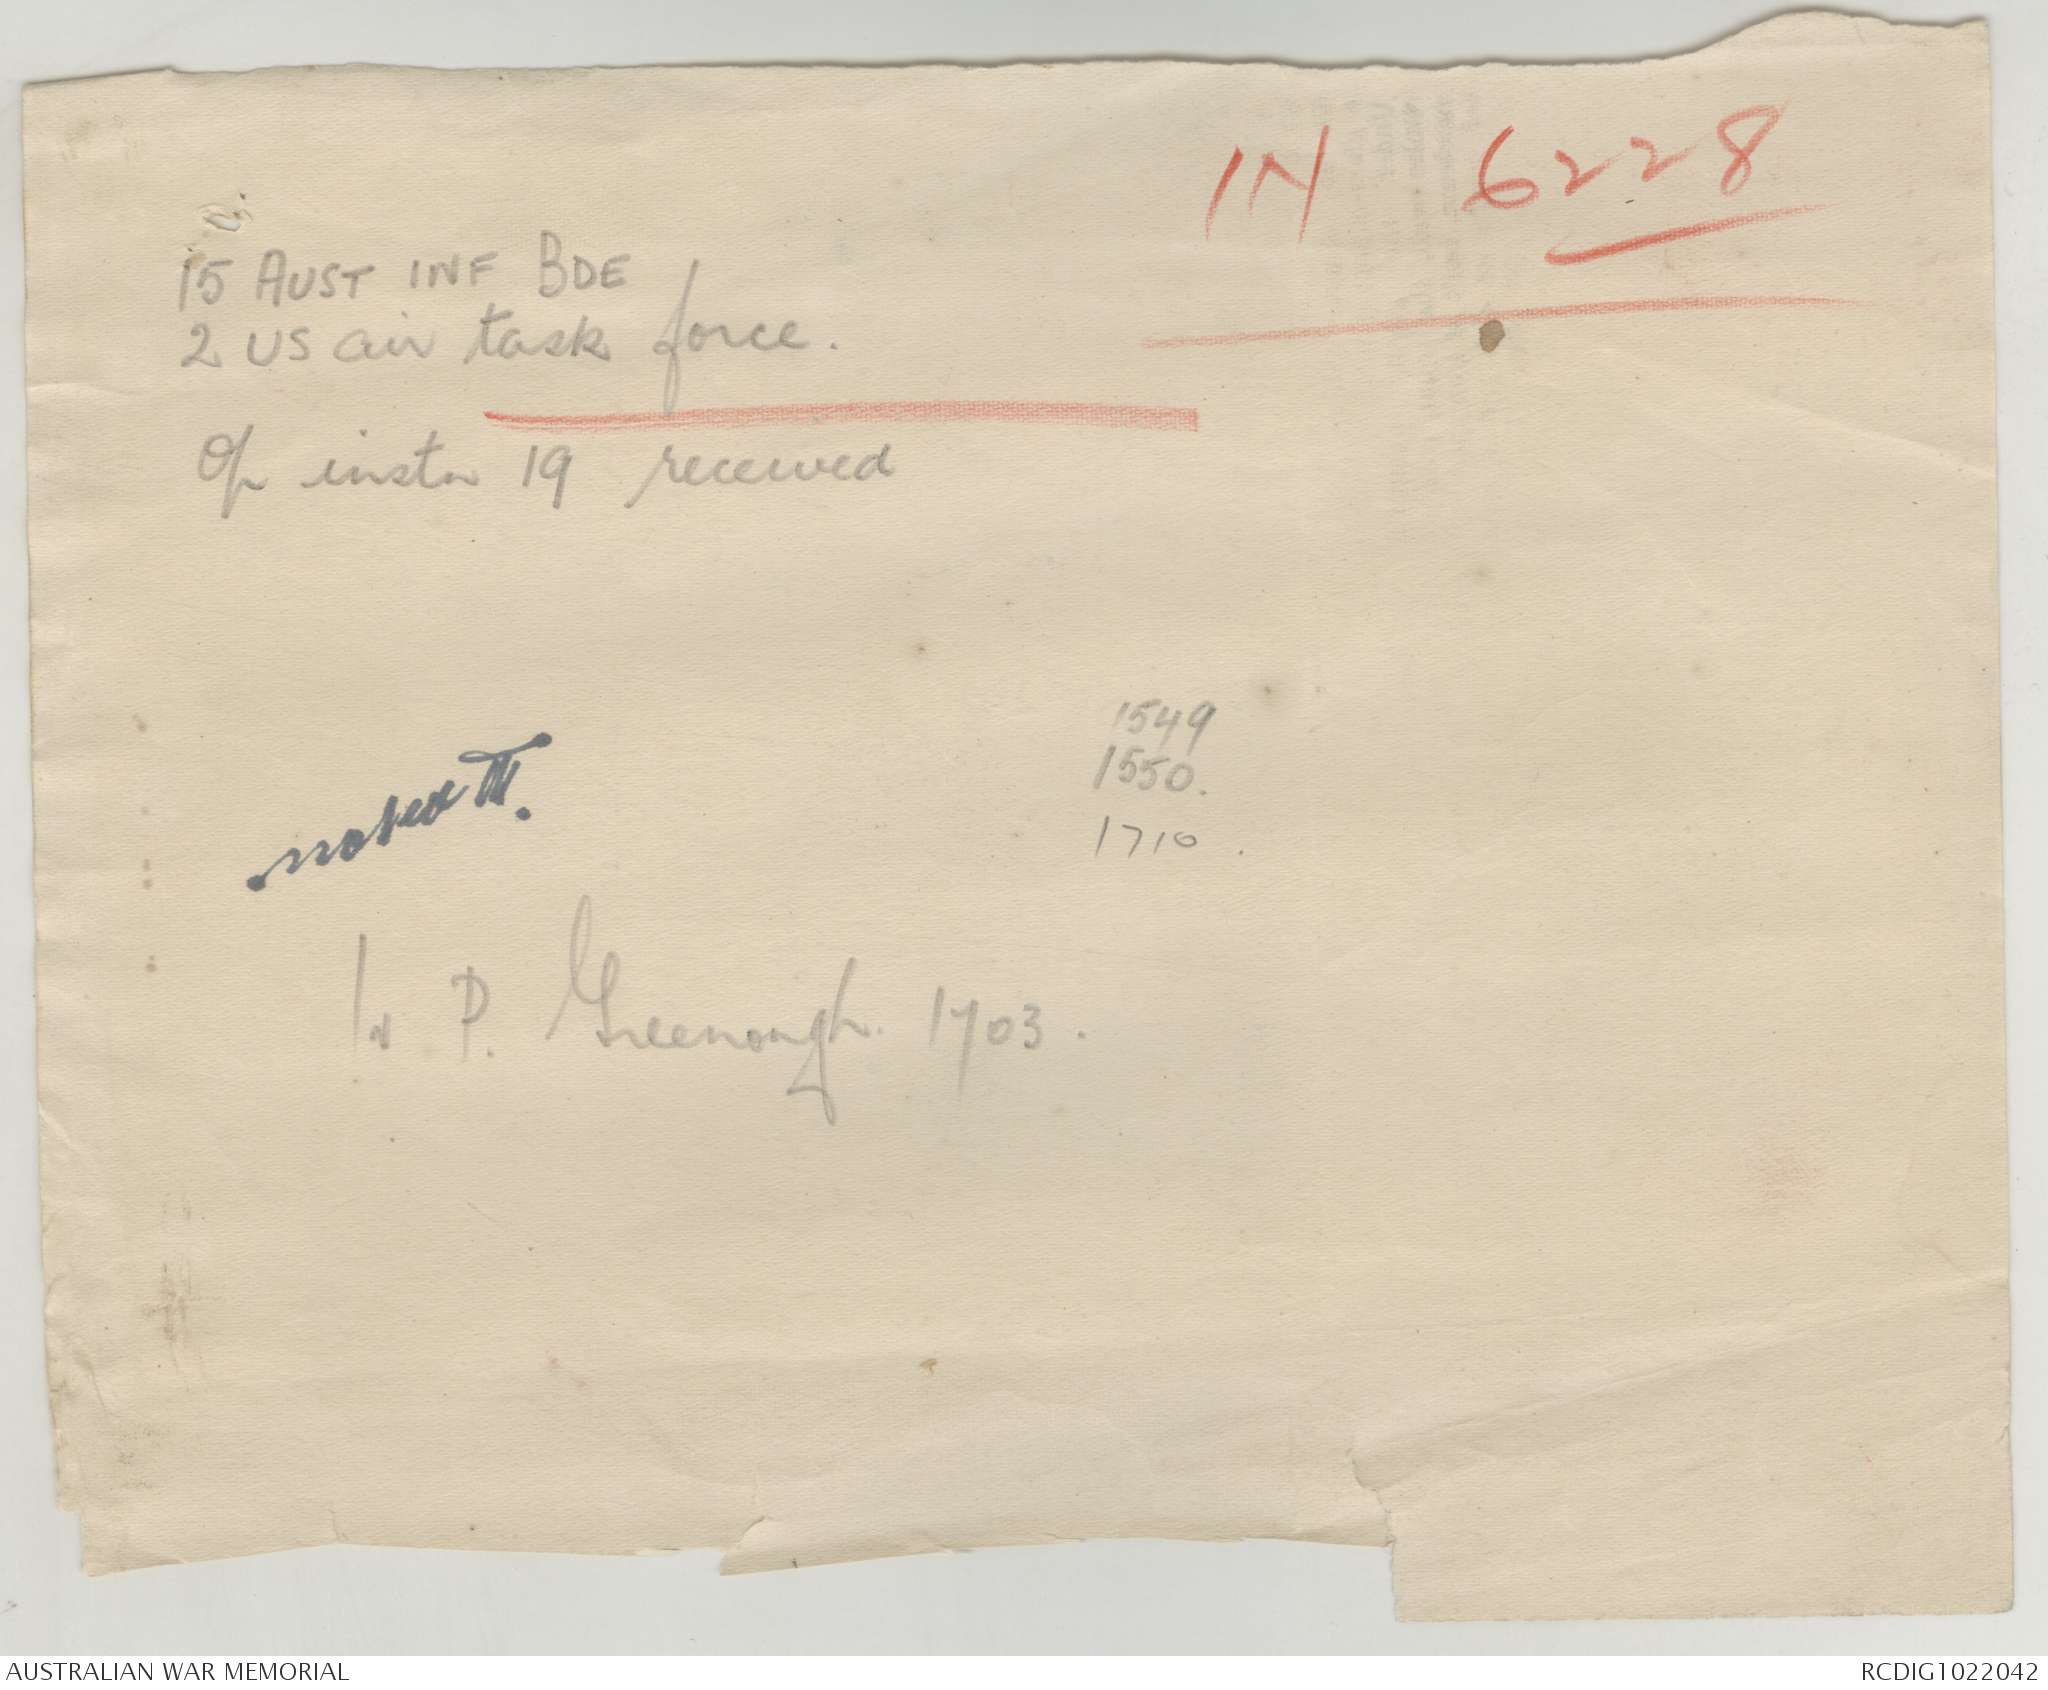 IN 6228
15 AUST INF BDE
2 US air task force.
Op instn 19 received
1549
1550.
noted
1710.
P. Greenough. 1703.
AUSTRALIAN WAR MEMORIAL
RCDIG1022042